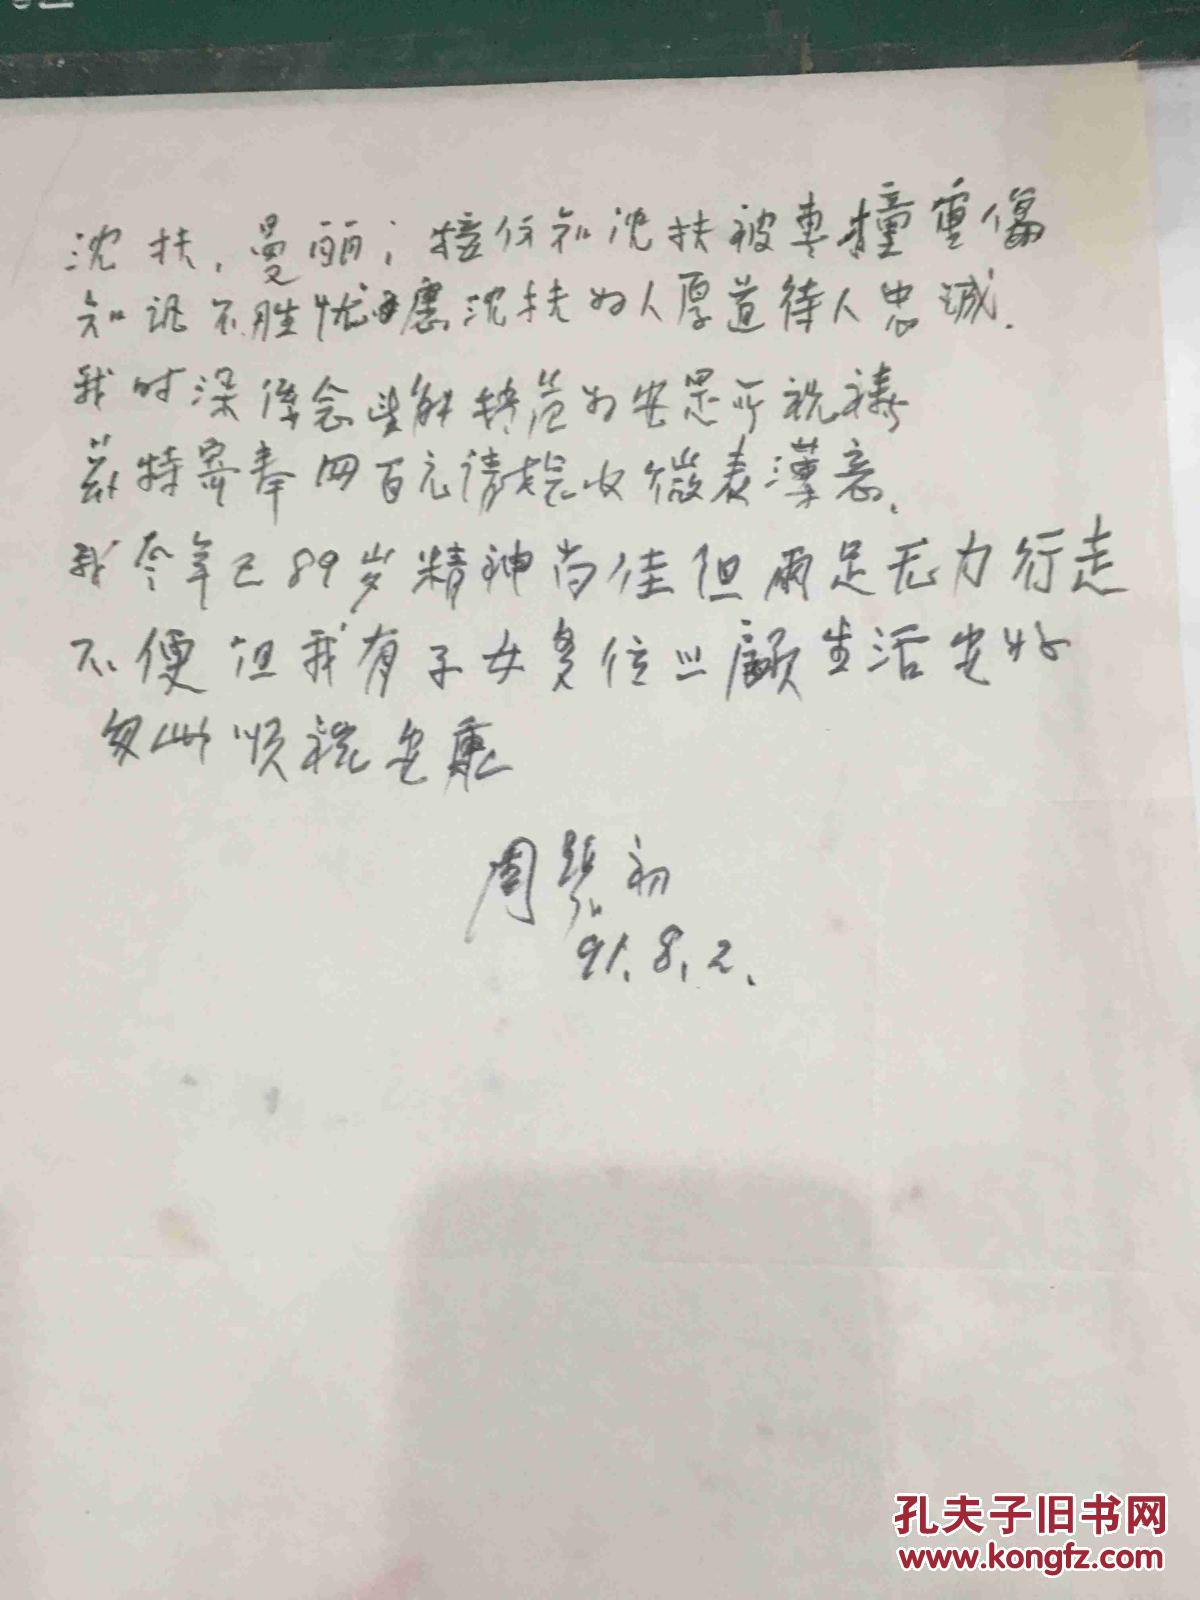 沈扶，曼丽；接仿知沈扶被車撞重傷
知讯不胜忧慮沈扶为人厚道待人忠诚．
我时深係念些解转危为安是所祝祷
兹特寄奉四百元请檢收微表薄意．
我今年已89岁精神尚佳但兩足无力行走
不便但我有子女多位照顧生活安好
匆此顺祝安康
周 初
91.8.2.
孔夫子旧书网
www.kongfz.com